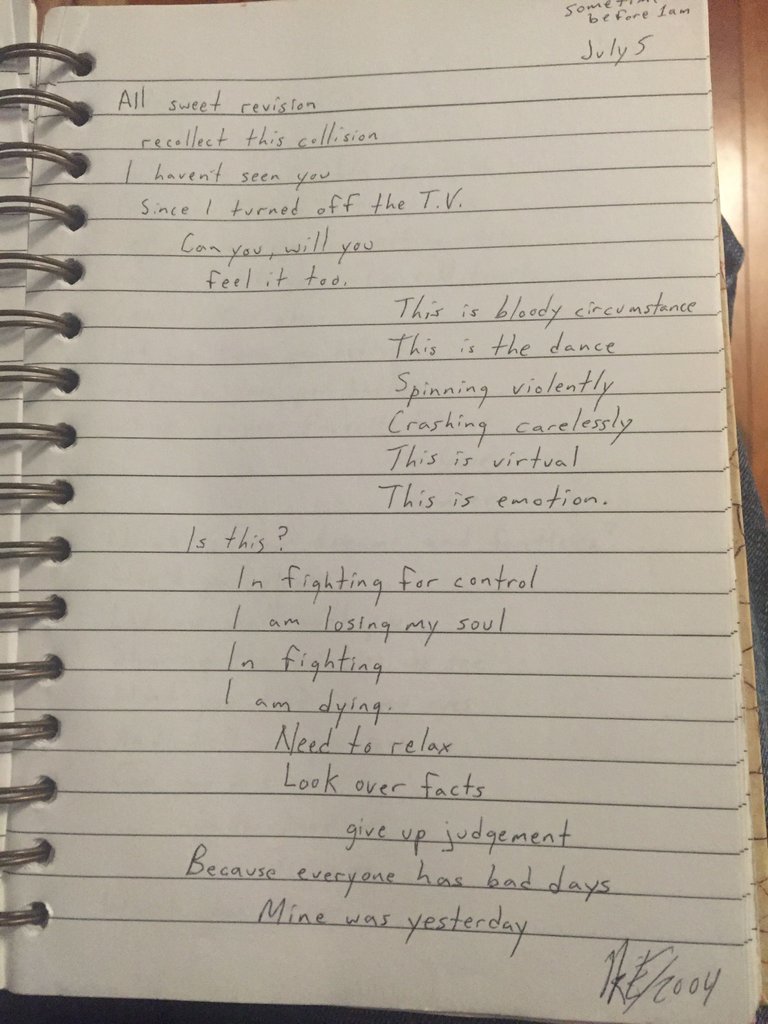 before 1am
July 5
All sweet revision
recollect this collision
I haven't seen you
Since I turned off the T.V.
Can you, will you
feel it too.
This is bloody circumstance
This is the dance
Spinning violently
Crashing carelessly
This is virtual
This is emotion.
Is this?
In fighting for control
I am losing my soul
In fighting
I am dying.
Need to relax
Look over facts
give up judgement
Because everyone has bad days
Mine was yesterday
/2004